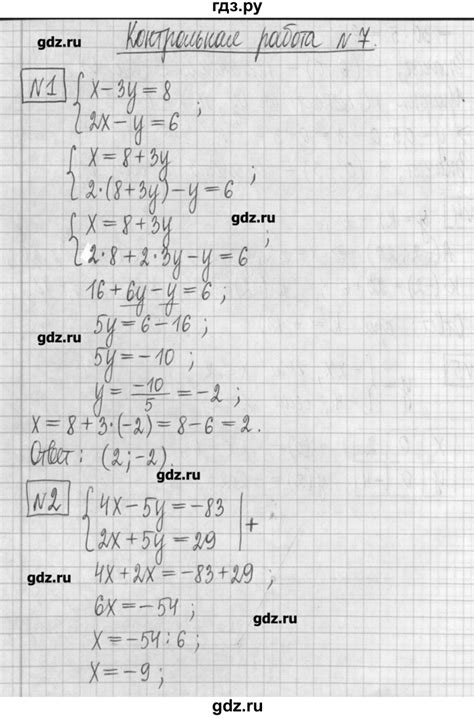 гдз.ру
gdz.ru
Контрольная работа №7.
№1 { x-3y=8
2x-y=6 ;
{ x=8+3y
2·(8+3y)-y=6 ;
gdz.ru
{ x=8+3y
2·8+2·3y-y=6 ;
16+6y-y=6 ;
gdz.ru
5y=6-16 ;
5y=-10 ;
y=-10/5=-2 ;
x=8+3·(-2)=8-6=2.
Ответ: (2;-2).
gdz.ru
№2 { 4x-5y=-83
2x+5y=29 | +
gdz.ru
4x+2x=-83+29 ;
6x=-54 ;
gdz.ru
x=-54:6 ;
x=-9 ;
gdz.ru